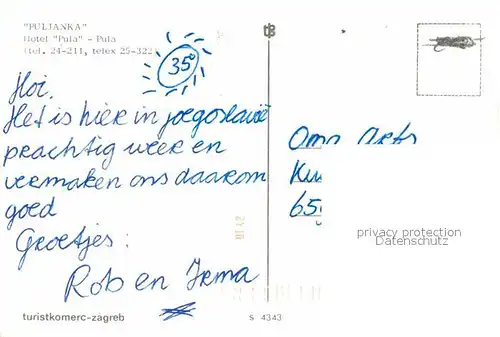 "PULJANKA"
Hotel "Pula" - Pula
(tel. 24-211, telex 25-322
35°
Hoi.
Het is hier in joegoslavië
prachtig weer en
vermaken ons daarom
goed
Groetjes:
Rob en Irma
turistkomerc-zagreb
S 4343
Oma
65
privacy protection
Datenschutz